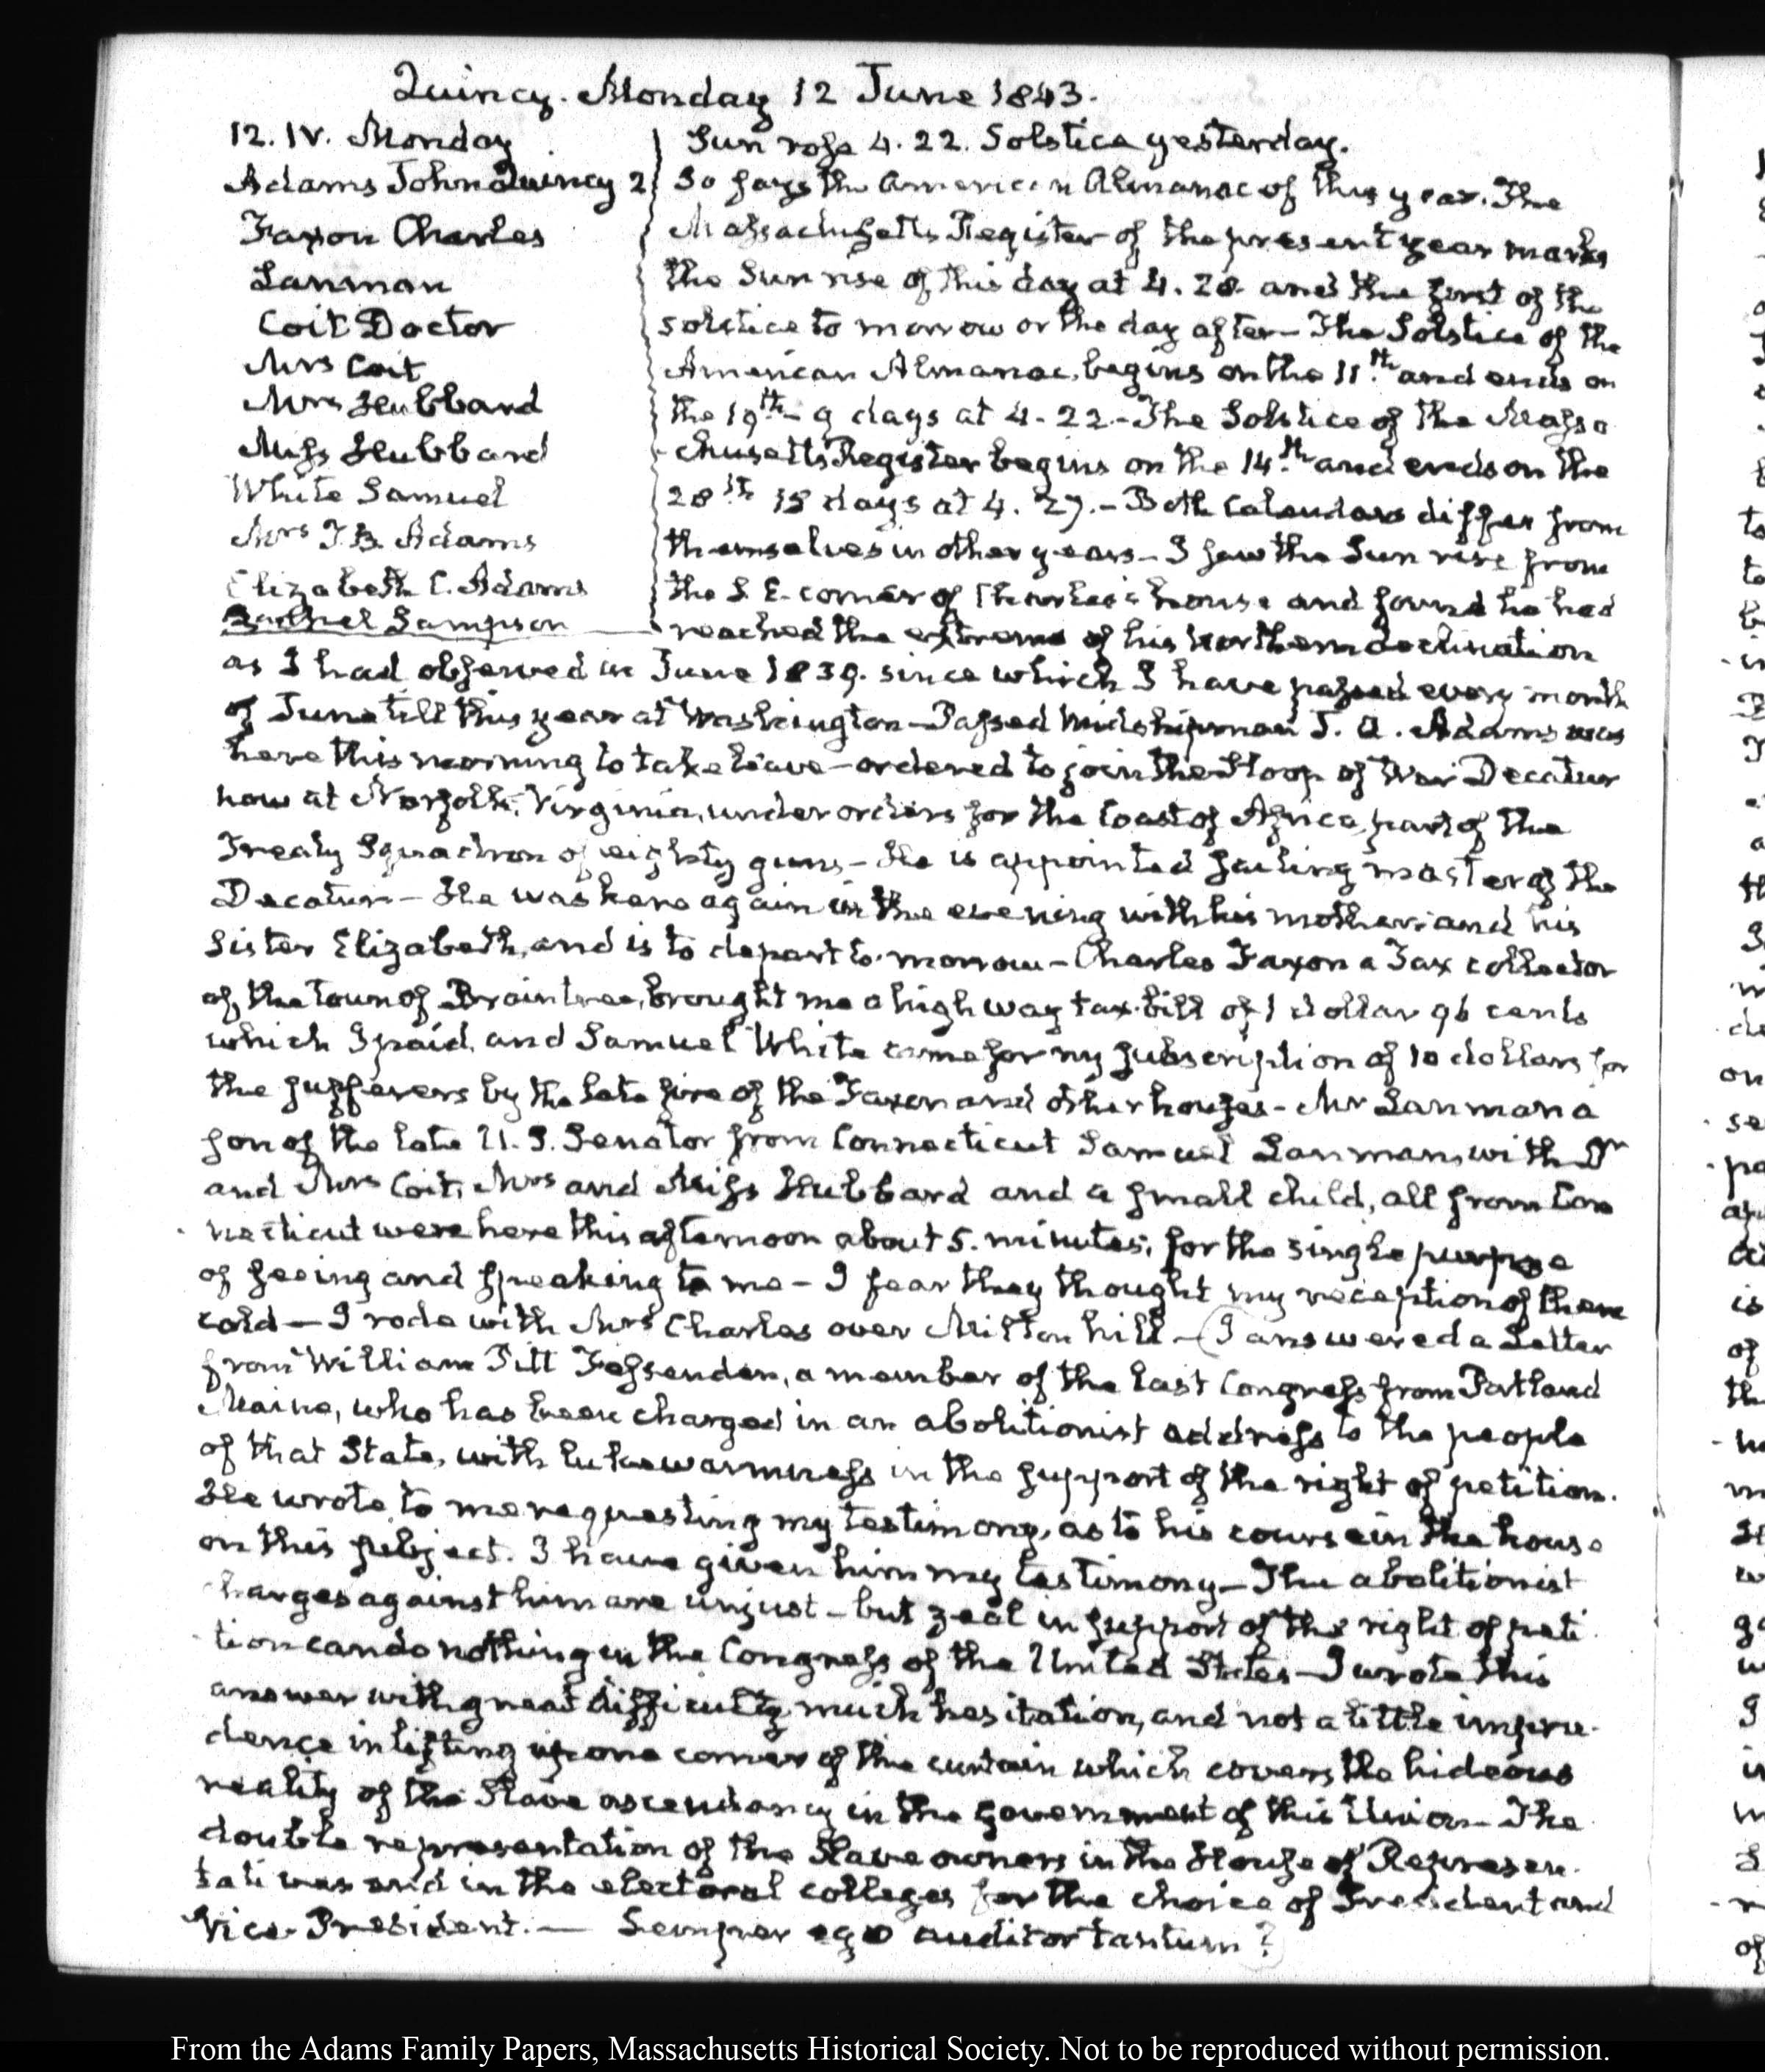 Quincy. Monday 12 June 1843.
12. IV. Monday
Adams John Quincy 2
Faxon Charles
Lanman
Coit Doctor
Mrs Coit
Mrs Hubbard
Miss Hubbard
White Samuel
Mrs T. B. Adams
Elizabeth C. Adams
Sampson
Sun rose 4. 22. Solstice yesterday.
So says the American Almanac of this year. The
Massachusetts Register of the present year marks
the Sun rise of this day at 4. 28 and the first of the
solstice to morrow or the day after— The Solstice of the
American Almanac, begins on the 11.th and ends on
the 19th— 9 days at 4. 22.— The Solstice of the Massa
chusetts Register begins on the 14.th and ends on the
28th 15 days at 4. 27.— Both Calendars differ from
themselves in other years— I saw the Sun rise from
the S. E. corner of Charles's house and found he had
reached the extreme of his Northern declination
as I had observed in June 1839. since which I have passed every month
of June till this year at Washington— Passed Midshipman J. Q. Adams was
here this morning to take leave— ordered to join the Sloop of War Decatur
now at Norfolk, Virginia, under orders for the Coast of Africa, part of the
Treaty Squadron of eighty guns— He is appointed sailing master of the
Decatur— He was here again in the evening with his mother and his
Sister Elizabeth, and is to depart to-morrow— Charles Faxon a Tax collector
of the town of Braintree, brought me a high way tax-bill of 1 dollar 96 cents
which I paid, and Samuel White came for my subscription of 10 dollars for
the sufferers by the late fire of the Faxon and other houses— Mr Lanman a
son of the late U. S. Senator from Connecticut Samuel Lanman, with Dr
and Mrs Coit, Mrs and Miss Hubbard and a small child, all from Con
necticut were here this afternoon about 5. minutes, for the single purpose
of seeing and speaking to me— I fear they thought my reception of them
cold— I rode with Mrs Charles over Milton hill— (I answered a Letter
from William Pitt Fessenden, a member of the last Congress from Portland
Maine, who has been charged in an abolitionist address to the people
of that State, with lukewarmness in the support of the right of petition.
He wrote to me requesting my testimony, as to his course in the house
on this subject. I have given him my testimony— The abolitionist
charges against him are unjust— but zeal in support of the right of peti
tion can do nothing in the Congress of the United States— I wrote this
answer with great difficulty, much hesitation, and not a little impru-
dence in lifting up one corner of the curtain which covers the hideous
reality of the Slave ascendancy in the government of this Union— The
double representation of the Slave owners in the House of Represen
tatives and in the electoral colleges for the choice of President and
Vice-President.— Semper ego auditor tantum?)
From the Adams Family Papers, Massachusetts Historical Society. Not to be reproduced without permission.